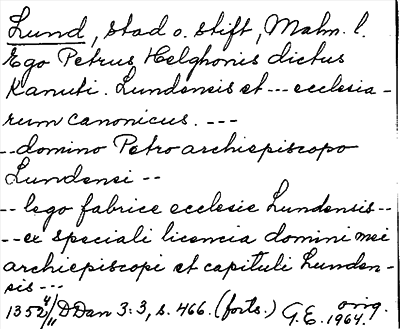 Lund, stad o. stift, Malm. l.
Ego Petrus Helghonis dictus
Kanuti. Lundensis et --- ecclesia-
rum canonicus. ---
-- domino Petro archiepiscopo
Lundensi --
-- lego fabrice ecclesie Lundensis --
-- ex speciali licencia domini mei
archiepiscopi et capituli Lunden-
sis ---
1352 4/11 DDan 3:3, s. 466. (forts.) G.E. orig. 1964.